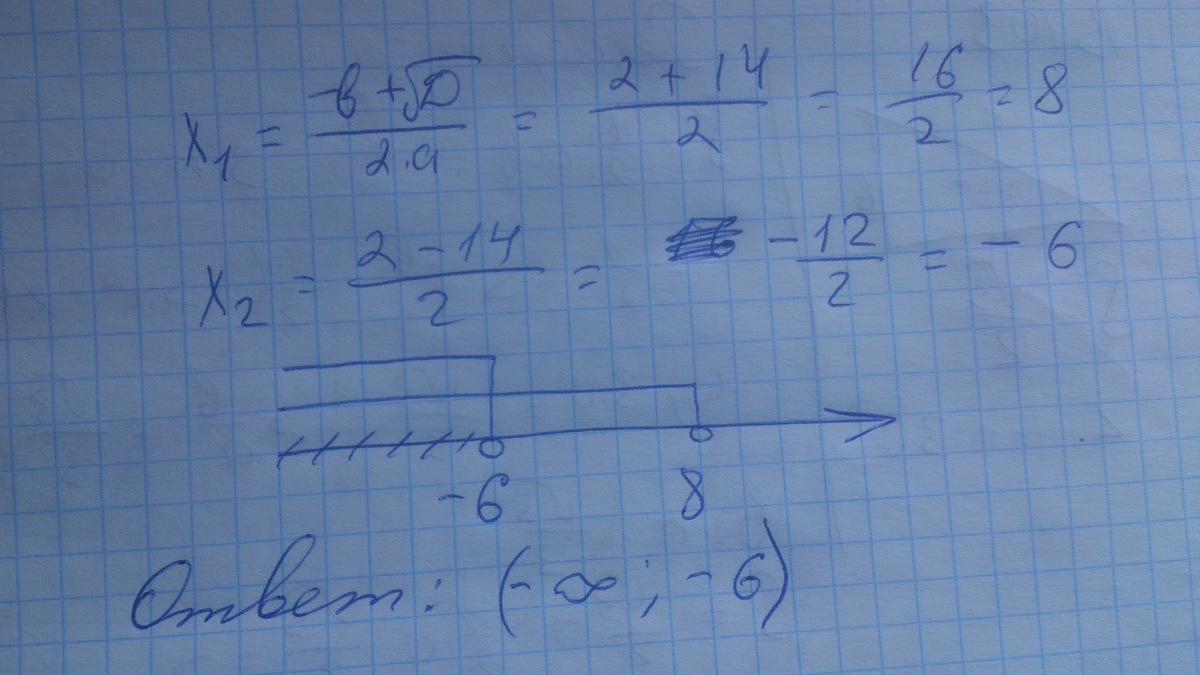 x₁ = (-b + √D)/(2·a) = (2 + 14)/2 = 16/2 = 8
x₂ = (2 - 14)/2 = -12/2 = - 6
-6 8
Ответ: (- ∞ ; - 6)